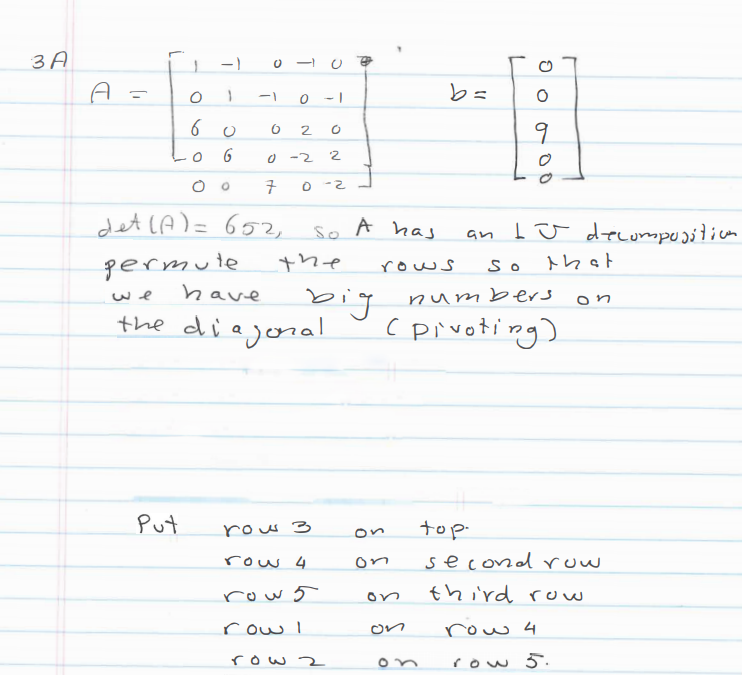 3A
A = [ 1 -1 0 -1 0 ] b = [ 0 ]
0 1 -1 0 -1 0
6 0 0 2 0 9
0 6 0 -2 2 0
0 0 7 0 -2 0
det(A) = 652, so A has an LU decomposition
permute the rows so that
we have big numbers on
the diagonal (pivoting)
Put row 3 on top.
row 4 on second row
row 5 on third row
row 1 on row 4
row 2 on row 5.